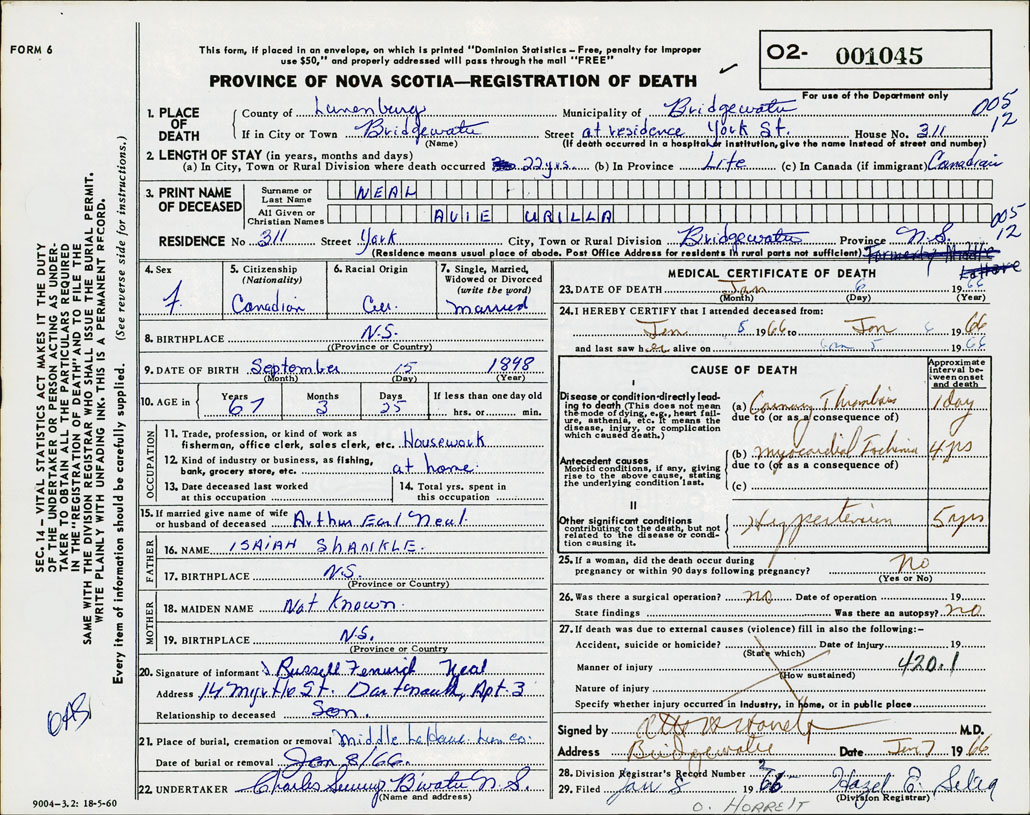 FORM 6
This form, if placed in an envelope, on which is printed "Dominion Statistics – Free, penalty for improper
use $50," and properly addressed will pass through the mail "FREE"
PROVINCE OF NOVA SCOTIA—REGISTRATION OF DEATH
O2- 001045
For use of the Department only
1. PLACE OF DEATH
County of Lunenburg Municipality of Bridgewater 005
If in City or Town Bridgewater Street at residence York St. House No. 311 12
(Name) (If death occurred in a hospital or institution, give the name instead of street and number)
2. LENGTH OF STAY (in years, months and days)
(a) In City, Town or Rural Division where death occurred 22 yrs. (b) In Province Life (c) In Canada (if immigrant) Canadian
3. PRINT NAME OF DECEASED
Surname or Last Name NEAL
All Given or Christian Names AVIE URILLA 005
12
RESIDENCE No 311 Street York City, Town or Rural Division Bridgewater Province N.S.
(Residence means usual place of abode. Post Office Address for residents in rural parts not sufficient) Formerly Middle
LaHave
4. Sex
5. Citizenship
(Nationality)
6. Racial Origin
7. Single, Married, Widowed or Divorced
(write the word)
f Canadian married
8. BIRTHPLACE N.S.
((Province or Country)
9. DATE OF BIRTH September 15 1898
(Month) (Day) (Year)
10. AGE in Years Months Days If less than one day old
67 3 25 hrs. or min.
OCCUPATION
11. Trade, profession, or kind of work as
fisherman, office clerk, sales clerk, etc. Housework
12. Kind of industry or business, as fishing,
bank, grocery store, etc. at home.
13. Date deceased last worked
at this occupation
14. Total yrs. spent in
this occupation
15. If married give name of wife
or husband of deceased Arthur Earl Neal.
FATHER
16. NAME ISAIAH SHANKLE.
17. BIRTHPLACE N.S.
(Province or Country)
MOTHER
18. MAIDEN NAME Not Known.
19. BIRTHPLACE N.S.
(Province or Country
20. Signature of informant Russell Fenwick Neal
Address 14 Myrtle St. Dartmouth, Apt. 3
Relationship to deceased Son.
21. Place of burial, cremation or removal Middle LaHave Lun co.
Date of burial or removal Jan 8/66.
22. UNDERTAKER Charles B'water N.S.
(Name and address)
9004-3.2: 18-5-60
MEDICAL CERTIFICATE OF DEATH
23. DATE OF DEATH Jan 6 1966
(Month) (Day) (Year)
24. I HEREBY CERTIFY that I attended deceased from:
Jan 5 1966 to Jan 6 1966
and last saw her alive on Jan 5 1966
CAUSE OF DEATH
Approximate interval between onset and death
I
Disease or condition directly leading to death (This does not mean the mode of dying, e.g., heart failure, asthenia, etc. It means the disease, injury, or complication which caused death.)
(a) Coronary Thrombosis 1 day
due to (or as a consequence of)
Antecedent causes
Morbid conditions, if any, giving rise to the above cause, stating the underlying condition last.
(b) myocardial Ischemia 4 yrs
due to (or as a consequence of)
(c)
II
Other significant conditions
contributing to the death, but not related to the disease or condition causing it.
Hypertension 5 yrs
25. If a woman, did the death occur during
pregnancy or within 90 days following pregnancy? No
(Yes or No)
26. Was there a surgical operation? no Date of operation 19
State findings Was there an autopsy? no
27. If death was due to external causes (violence) fill in also the following:–
Accident, suicide or homicide? Date of injury 19
(State which)
Manner of injury 420.1
(How sustained)
Nature of injury
Specify whether injury occurred in industry, in home, or in public place
Signed by M.D.
Address Bridgewater Date Jan 7 1966
28. Division Registrar's Record Number 2
29. Filed Jan 8 1966 Hazel E. Selig
(Division Registrar)
SEC. 14 – VITAL STATISTICS ACT MAKES IT THE DUTY
OF THE UNDERTAKER OR PERSON ACTING AS UNDER-
TAKER TO OBTAIN ALL THE PARTICULARS REQUIRED
IN THE "REGISTRATION OF DEATH" AND TO FILE THE
SAME WITH THE DIVISION REGISTRAR WHO SHALL ISSUE THE BURIAL PERMIT.
WRITE PLAINLY WITH UNFADING INK. THIS IS A PERMANENT RECORD.
Every item of information should be carefully supplied. (See reverse side for instructions.)